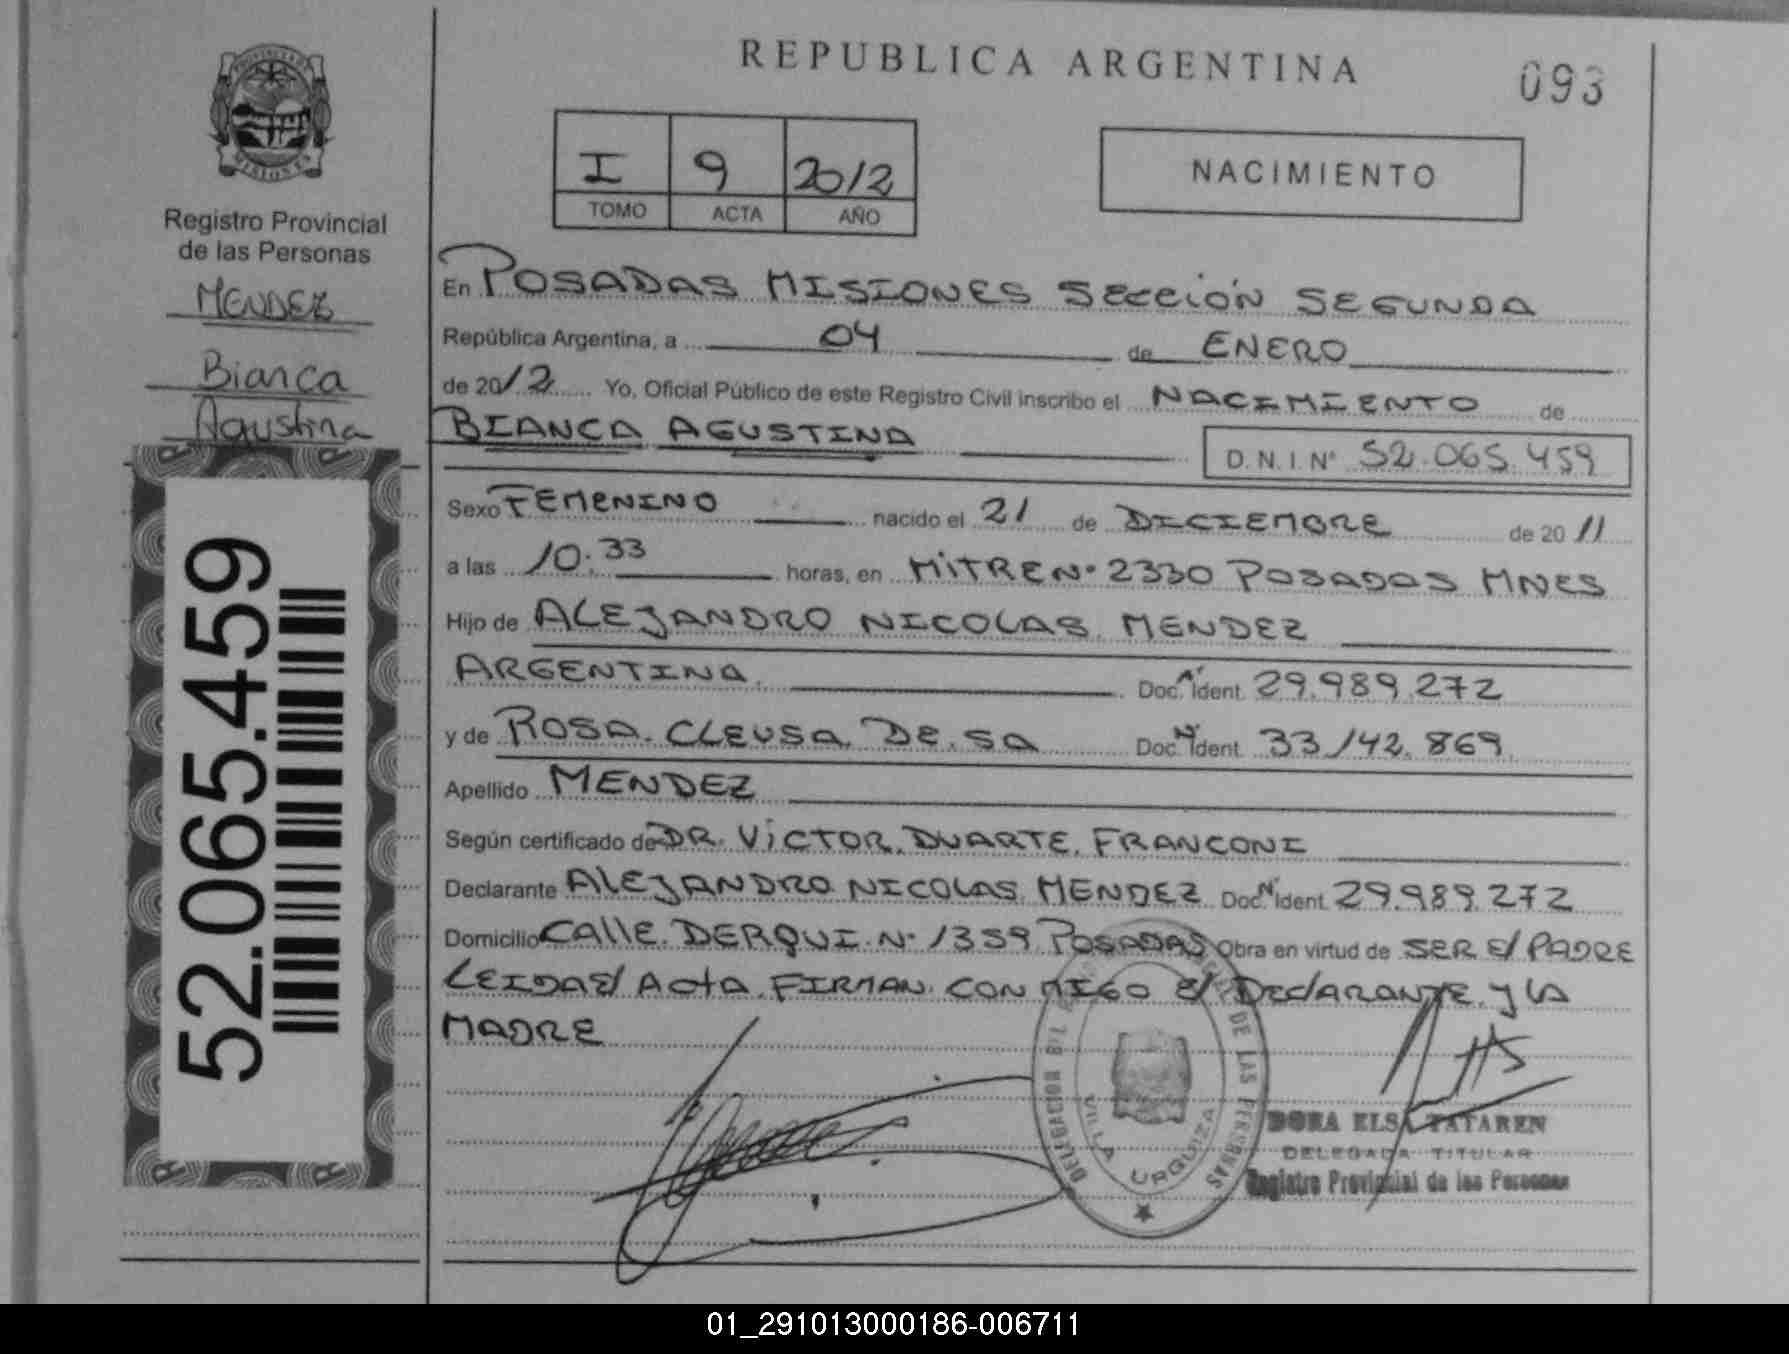 REPUBLICA ARGENTINA
093
PROVINCIA DE MISIONES
Registro Provincial
de las Personas
MENDEZ
Bianca
Agustina
52.065.459
I 9 2012
TOMO ACTA AÑO
NACIMIENTO
En POSADAS MISIONES SECCIÓN SEGUNDA
República Argentina, a 04 de ENERO
de 2012 Yo, Oficial Público de este Registro Civil inscribo el NACIMIENTO de
BIANCA AGUSTINA D.N.I. Nº 52.065.459
Sexo FEMENINO nacido el 21 de DICIEMBRE de 2011
a las 10:33 horas, en MITRE Nº 2330 POSADAS MNES
Hijo de ALEJANDRO NICOLAS MENDEZ
ARGENTINA Doc. Ident. 29.989.272
y de ROSA CLEUSA DE SA Doc. Ident. 33142.869
Apellido MENDEZ
Según certificado de DR. VICTOR DUARTE FRANCONI
Declarante ALEJANDRO NICOLAS MENDEZ Doc. Ident. 29.989.272
Domicilio CALLE DERQUI Nº 1359 POSADAS Obra en virtud de SER El PADRE
LEIDA El Acta FIRMAN CONMIGO El DEClARANTE Y LA
MADRE
VILLA URQUIZA
DE LAS PERSONAS
DORA ELSA TATAREN
DELEGADA TITULAR
Registro Provincial de las Personas
01_291013000186-006711